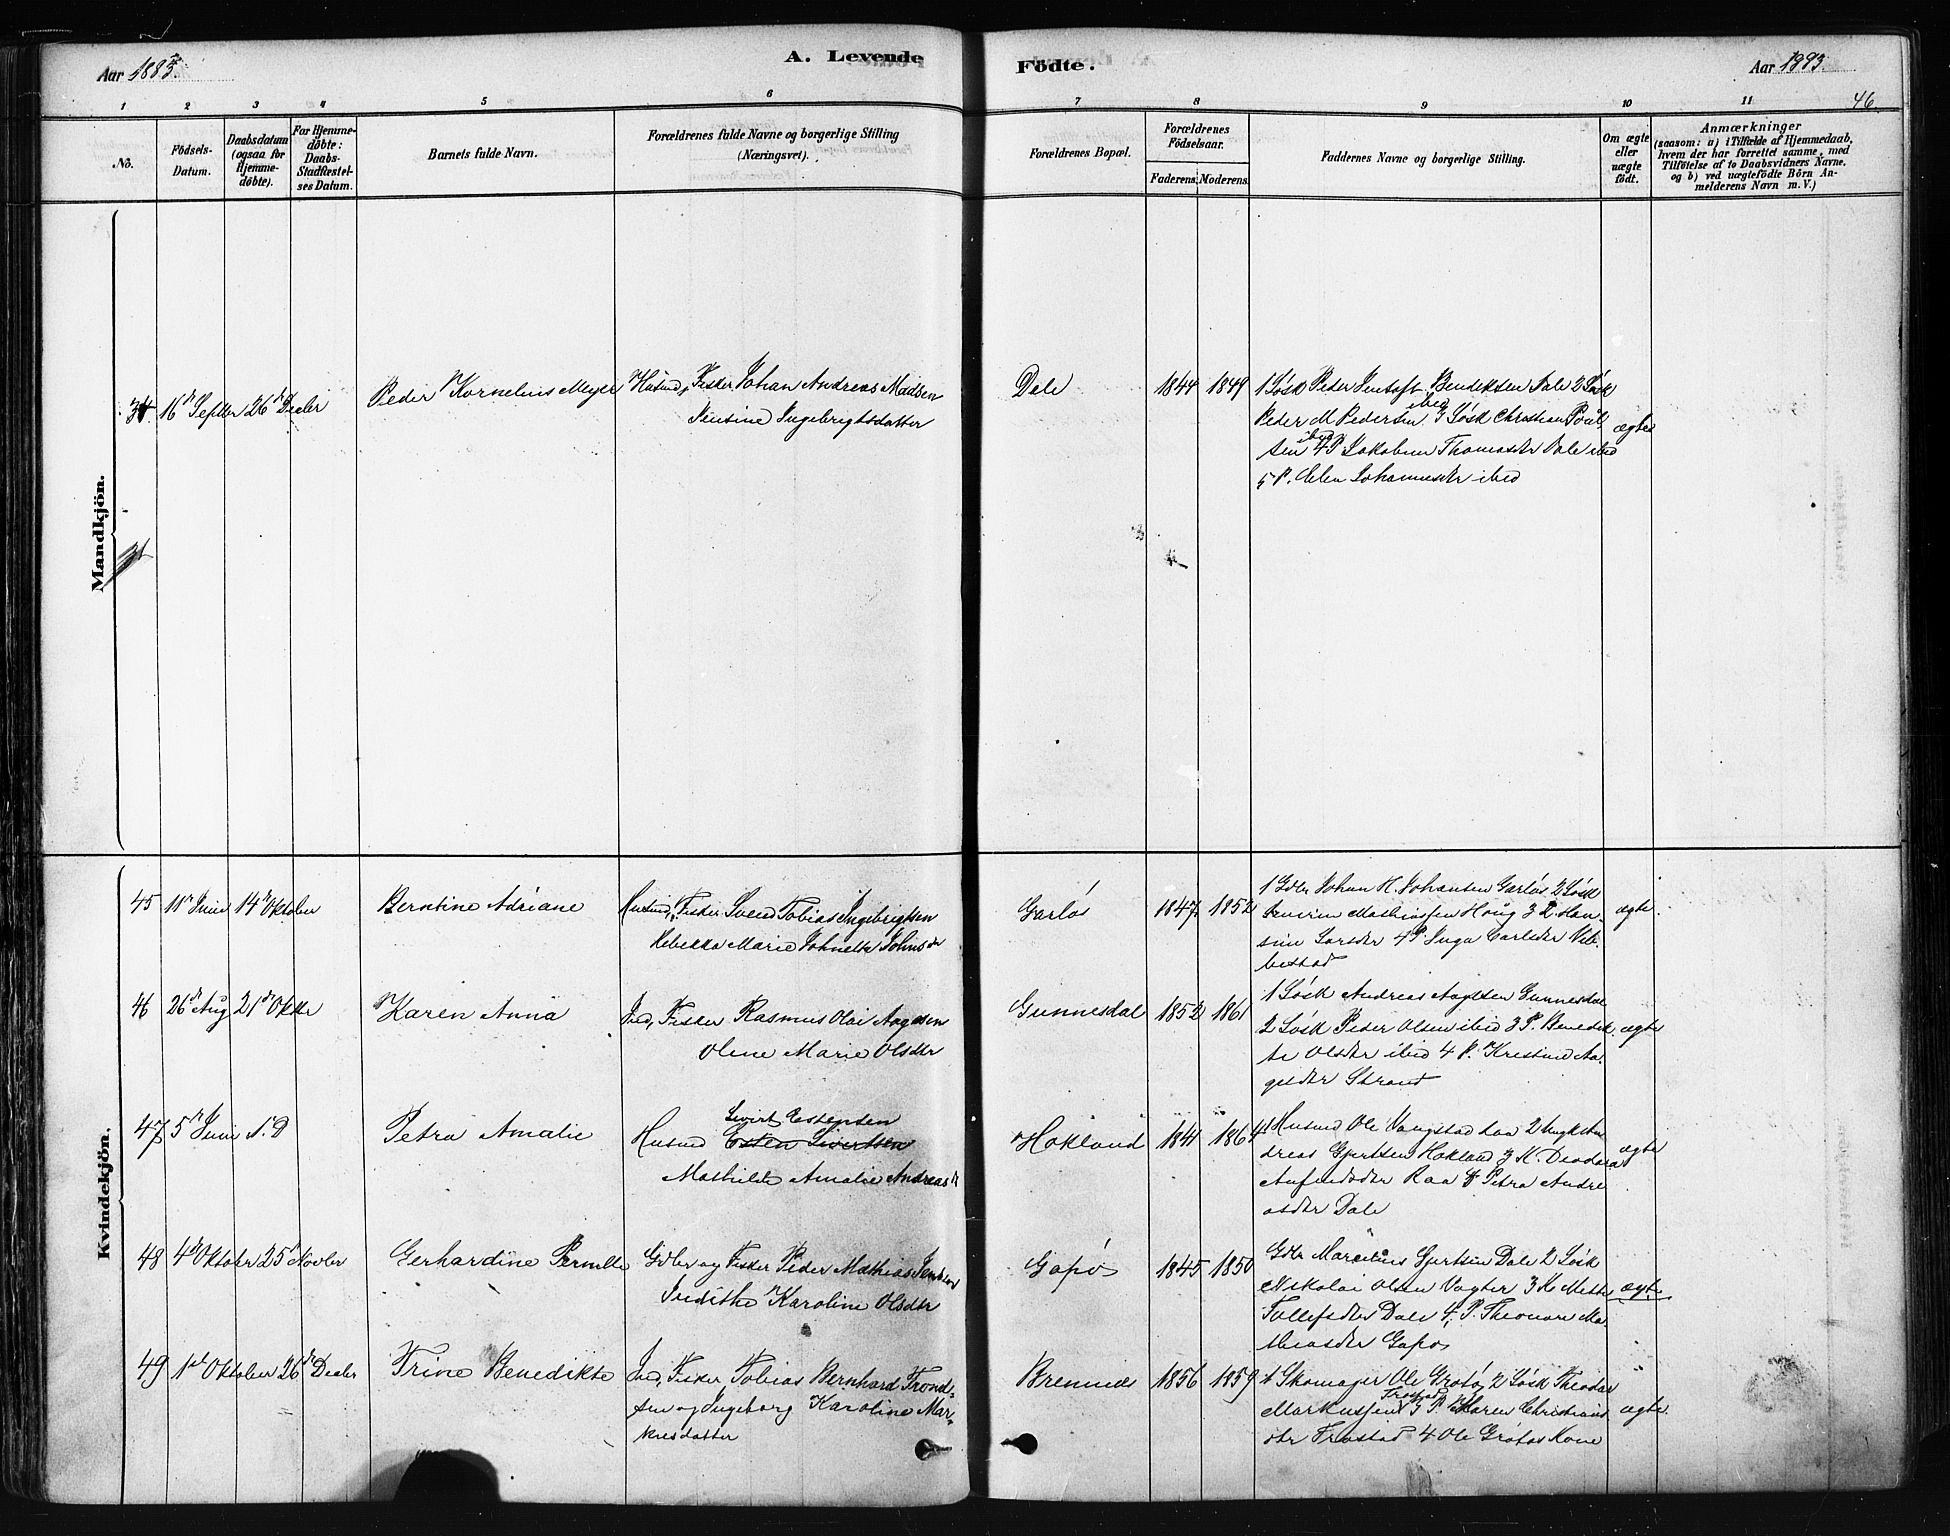 Aar 1883.
A. Levende
Födte.
Aar 1883.
46.
1 2 3 4 5 6 7 8 9 10 11
No.
Födsels-
Datum.
Daabsdatum
(ogsaa for
Hjemme-
döbte).
For Hjemme-
döbte:
Daabs-
Stadfæstel-
ses Datum.
Barnets fulde Navn.
Forældrenes fulde Navne og borgerlige Stilling
(Næringsvei).
Forældrenes Bopæl.
Forældrenes
Födselsaar.
Faderens. Moderens.
Faddernes Navne og borgerlige Stilling.
Om ægte
eller
uægte
födt.
Anmærkninger
(saasom: a) i Tilfælde af Hjemmedaab,
hvem der har forrettet samme, med
Tilföielse af to Daabsvidners Navne,
og b) ved uægtefödte Börn An-
melderens Navn m. V.)
Mandkjön.
34 16de Septbr 26de Decbr
Peder Kornelius Meyer
Husmd, Fisker Johan Andreas Madsen
Jensine Ingebrigtsdatter
Dale
1844 1849
1 Løsk Peder Jentoft Bendiksen Dale 2 Løsk
Peder M Pedersen ibid 3 Løsk Christian Poul-
sen ibid 4 P Jakobine Thomasdtr Dale ibid
5 P. Elen Johannesdtr ibid
ægte
Kvindekjön.
45 11te Juni 14de Oktober
Berntine Adriane
Husmd, Fisker Svend Tobias Ingebrigtsen
Rebekka Marie Johnette Johnsdr
Garløs
1847 1852
1 Gdbr Johan H. Johansen Garløs 2 Løsk
Severin Mathiassen Houg 3 P. Han-
sine Larsdtr 4 P. Inga Carlsdtr Veb-
bestad
ægte
46 26de Aug 21de Oktbr
Karen Anna
Ind, Fisker Rasmus Olai Aagesen
Olene Marie Olsdtr
Gunnesdal
1852 1861
1 Løsk Andreas Aagesen Gunnesdal
2 Løsk Peder Olsen ibid 3 P. Benedik-
te Olsdtr ibid 4 P. Kristine Aa-
gesdtr Strand
ægte
47 5te Juni s. D
Petra Amalie
Sivert Estensen
Husmd Esten Sivertsen
Mathilde Amalie Andreasdr
Hokland
1841 1864
1 Husmd Ole Vangstad 2 Ungk An-
dreas Gjertsen Hokland 3 K. Deodora
Raa 4 Petra Andre
asdtr Dale
ægte
48 4de Oktober 25de Novbr
Gerhardine Pernille
Gdbr og Fisker Peder Mathias Jenssen
Judithe Karoline Olsdtr
Gapø
1845 1850
Gdbr Marcelius Gjertsen Dale 2 Løsk
Nikolai Olsen Vagter 3 K Mette
Tollefsdtr Dale 4. P. Theonore Ma-
thiasdtr Gapø
ægte
49 1ste Oktober 26de Decbr
Trine Benedikte
Ind, Fisker Tobias Bernhard Trond-
sen og Ingeborg Karoline Mar-
kusdatter
Bremnes
1856 1859
1 Skomager Ole Grøtø 2 Løsk Theodor
Markussen Trastad 3 P. Karen Christians
dtr Trastad 4 Ole Grøtøs Kone
ægte